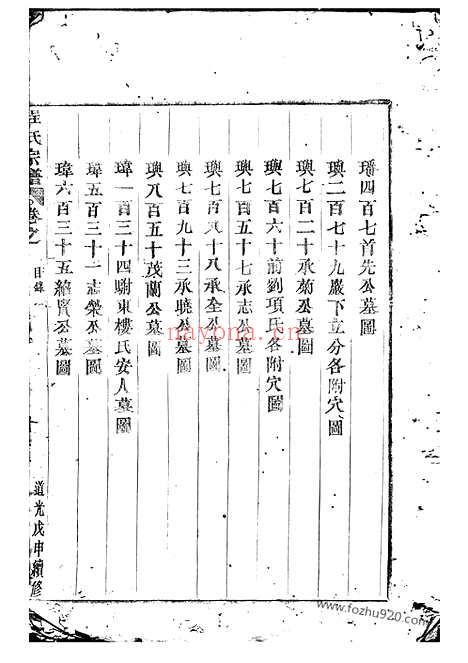 璠四百七首先公墓圖
璵二百七十九嚴下立分各附穴圖
璵七百二十承菊公墓圖
璵七百六十前劉項氏各附穴圖
璵七百五十七承志公墓圖
璵七百八十八承全公墓圖
璵七百九十三承曉公墓圖
璵八百五十茂蘭公墓圖
瑋一百三十四駙東樓氏安人墓圖
瑋五百三十一志榮公墓圖
瑋六百三十五繽賢公墓圖
氏宗譜 卷之 目錄
道光戊申續修
nayona.cn
www.fozhu920.com